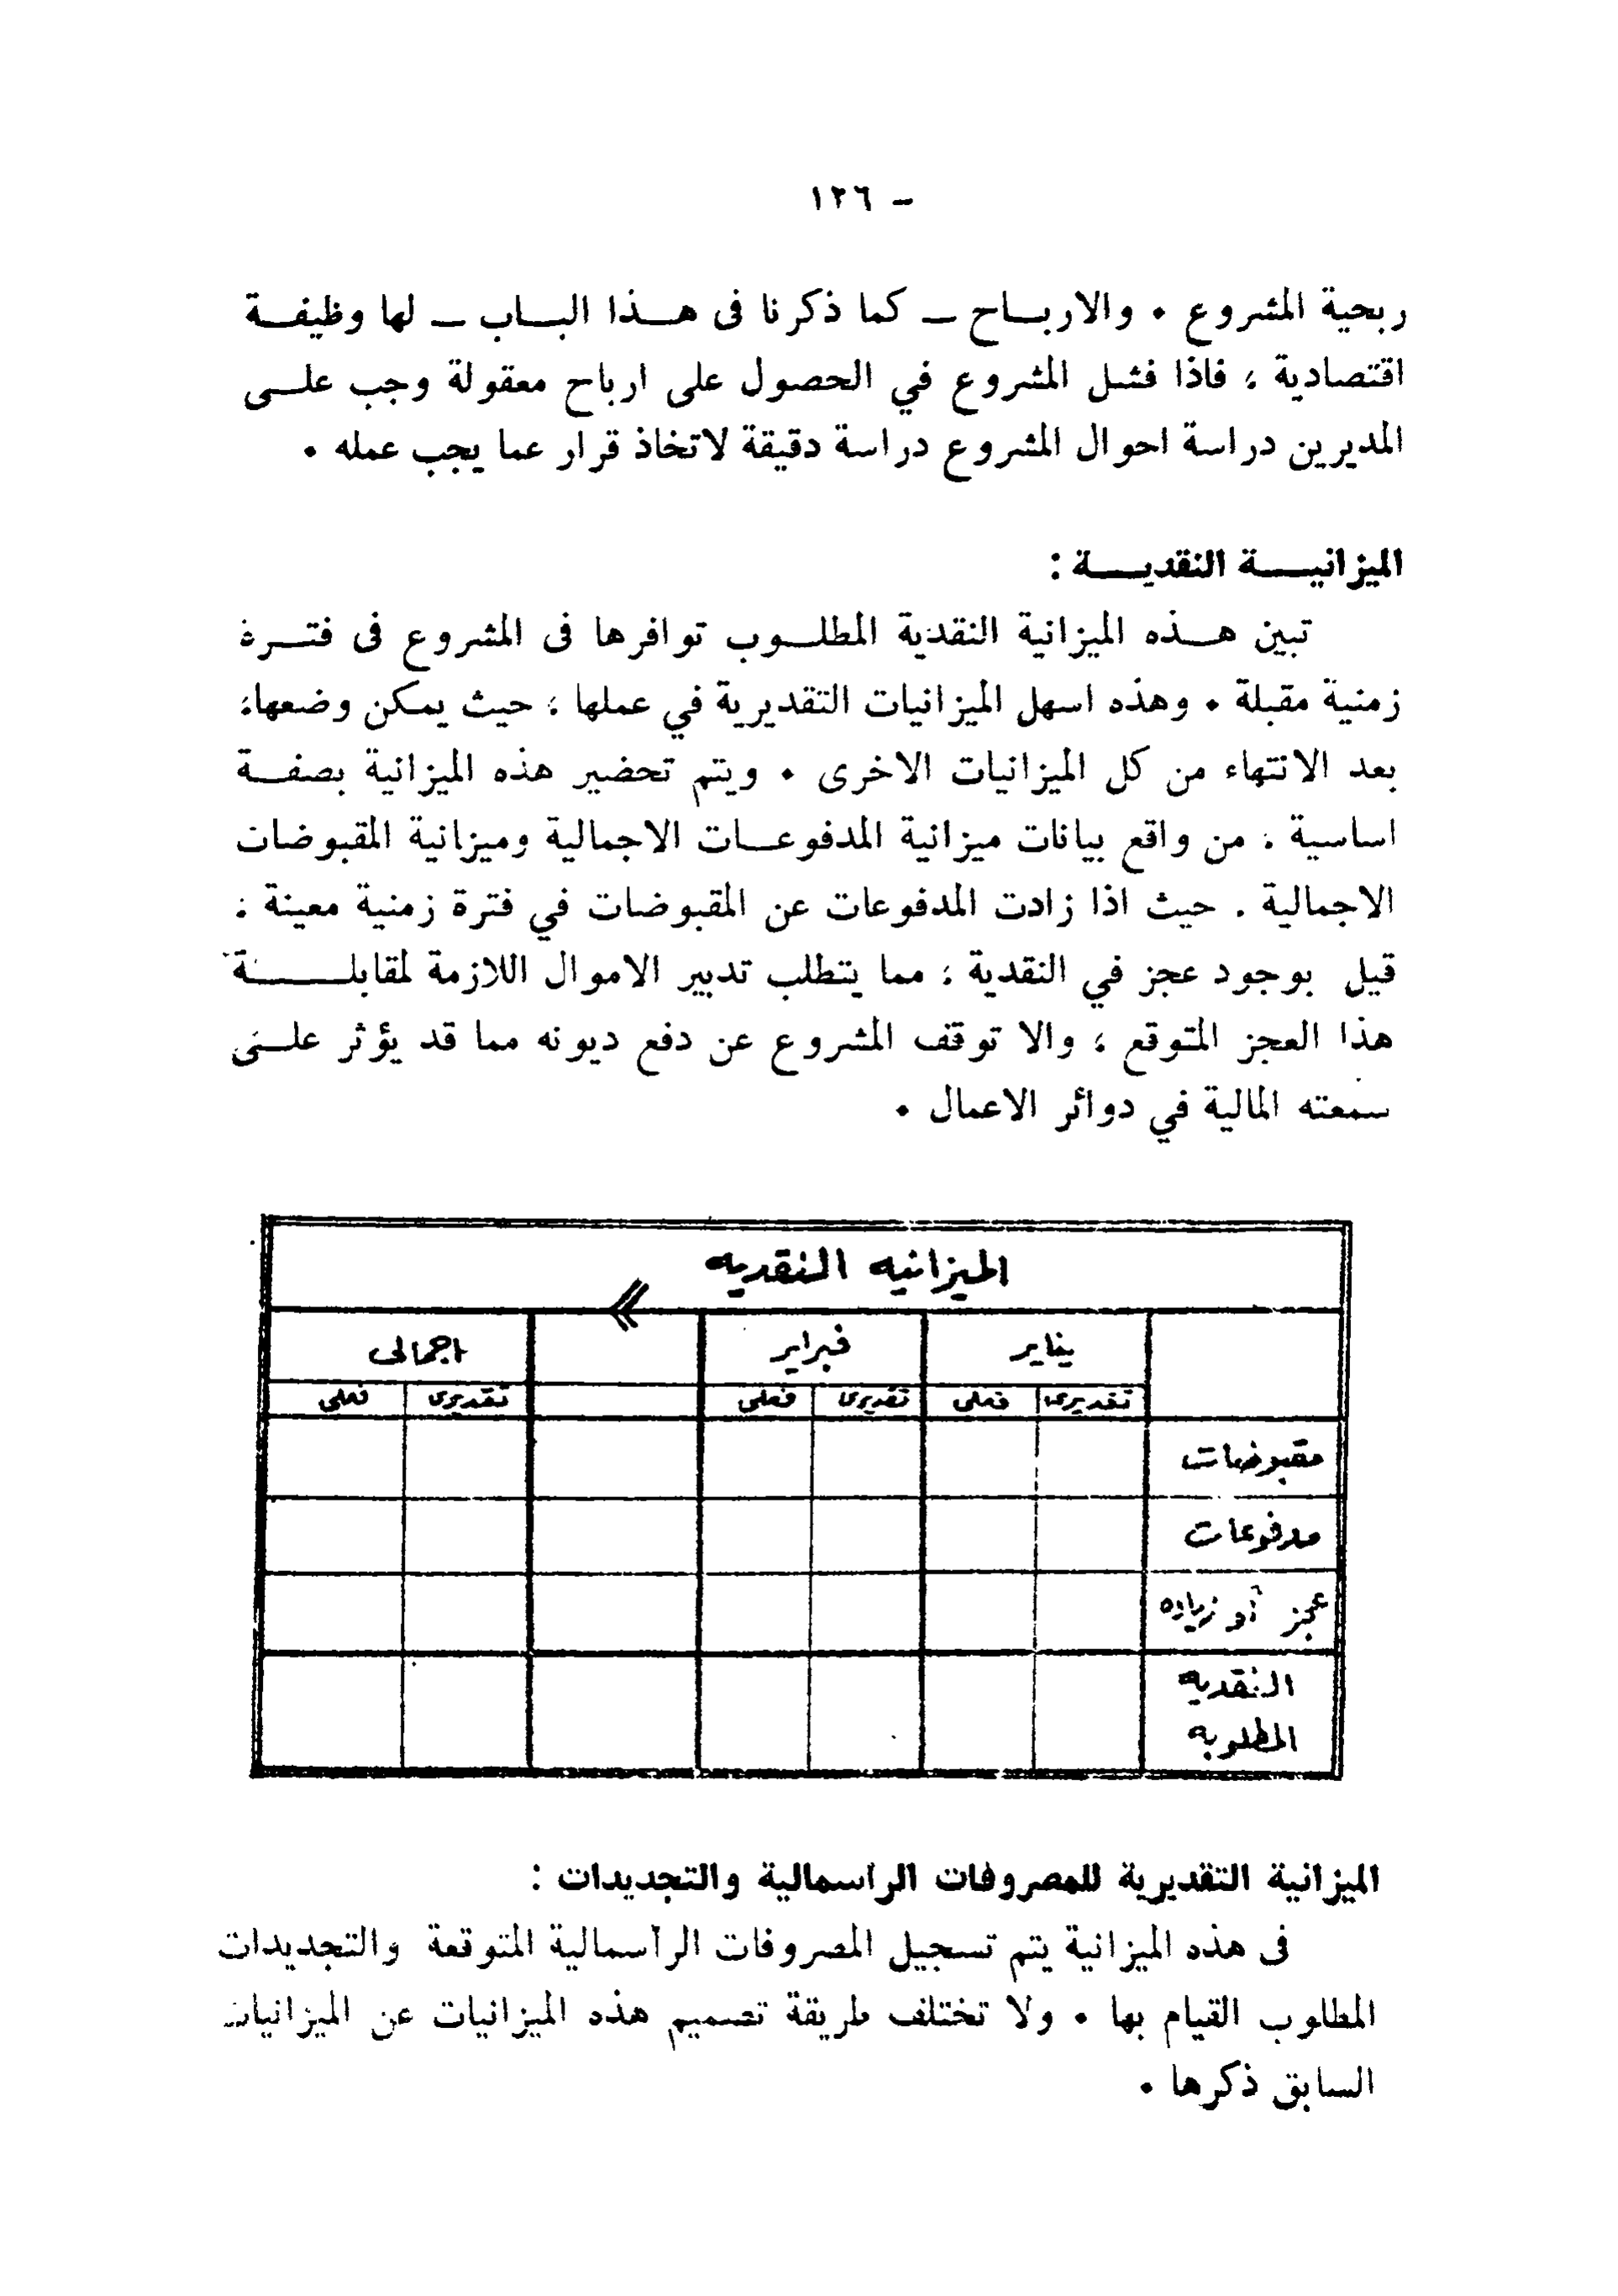 – ١٢٦
ربحية المشروع ٠ والارباح – كما ذكرنا فى هذا الباب – لها وظيفة
اقتصادية ، فاذا فشل المشروع في الحصول على ارباح معقولة وجب على
المديرين دراسة احوال المشروع دراسة دقيقة لاتخاذ قرار عما يجب عمله ٠
الميزانية النقدية :
تبين هذه الميزانية النقدية المطلوب توافرها فى المشروع فى فترة
زمنية مقبلة ٠ وهذه اسهل الميزانيات التقديرية في عملها ، حيث يمكن وضعها،
بعد الانتهاء من كل الميزانيات الاخرى ٠ ويتم تحضير هذه الميزانية بصفة
اساسية ، من واقع بيانات ميزانية المدفوعات الاجمالية وميزانية المقبوضات
الاجمالية . حيث اذا زادت المدفوعات عن المقبوضات في فترة زمنية معينة ،
قيل بوجود عجز في النقدية ، مما يتطلب تدبير الاموال اللازمة لمقابلة
هذا العجز المتوقع ، والا توقف المشروع عن دفع ديونه مما قد يؤثر على
سمعته المالية في دوائر الاعمال ٠
الميزانيه النقديه
يناير فبراير اجمالى
تقديرى فعلى تقديرى فعلى تقديرى فعلى
مقبوضات
مدفوعات
عجز أو زياده
النقديه
المطلوبه
الميزانية التقديرية للمصروفات الراسمالية والتجديدات :
فى هذه الميزانية يتم تسجيل المصروفات الرأسمالية المتوقعة والتجديدات
المطلوب القيام بها ٠ ولا تختلف طريقة تصميم هذه الميزانيات عن الميزانيات
السابق ذكرها ٠